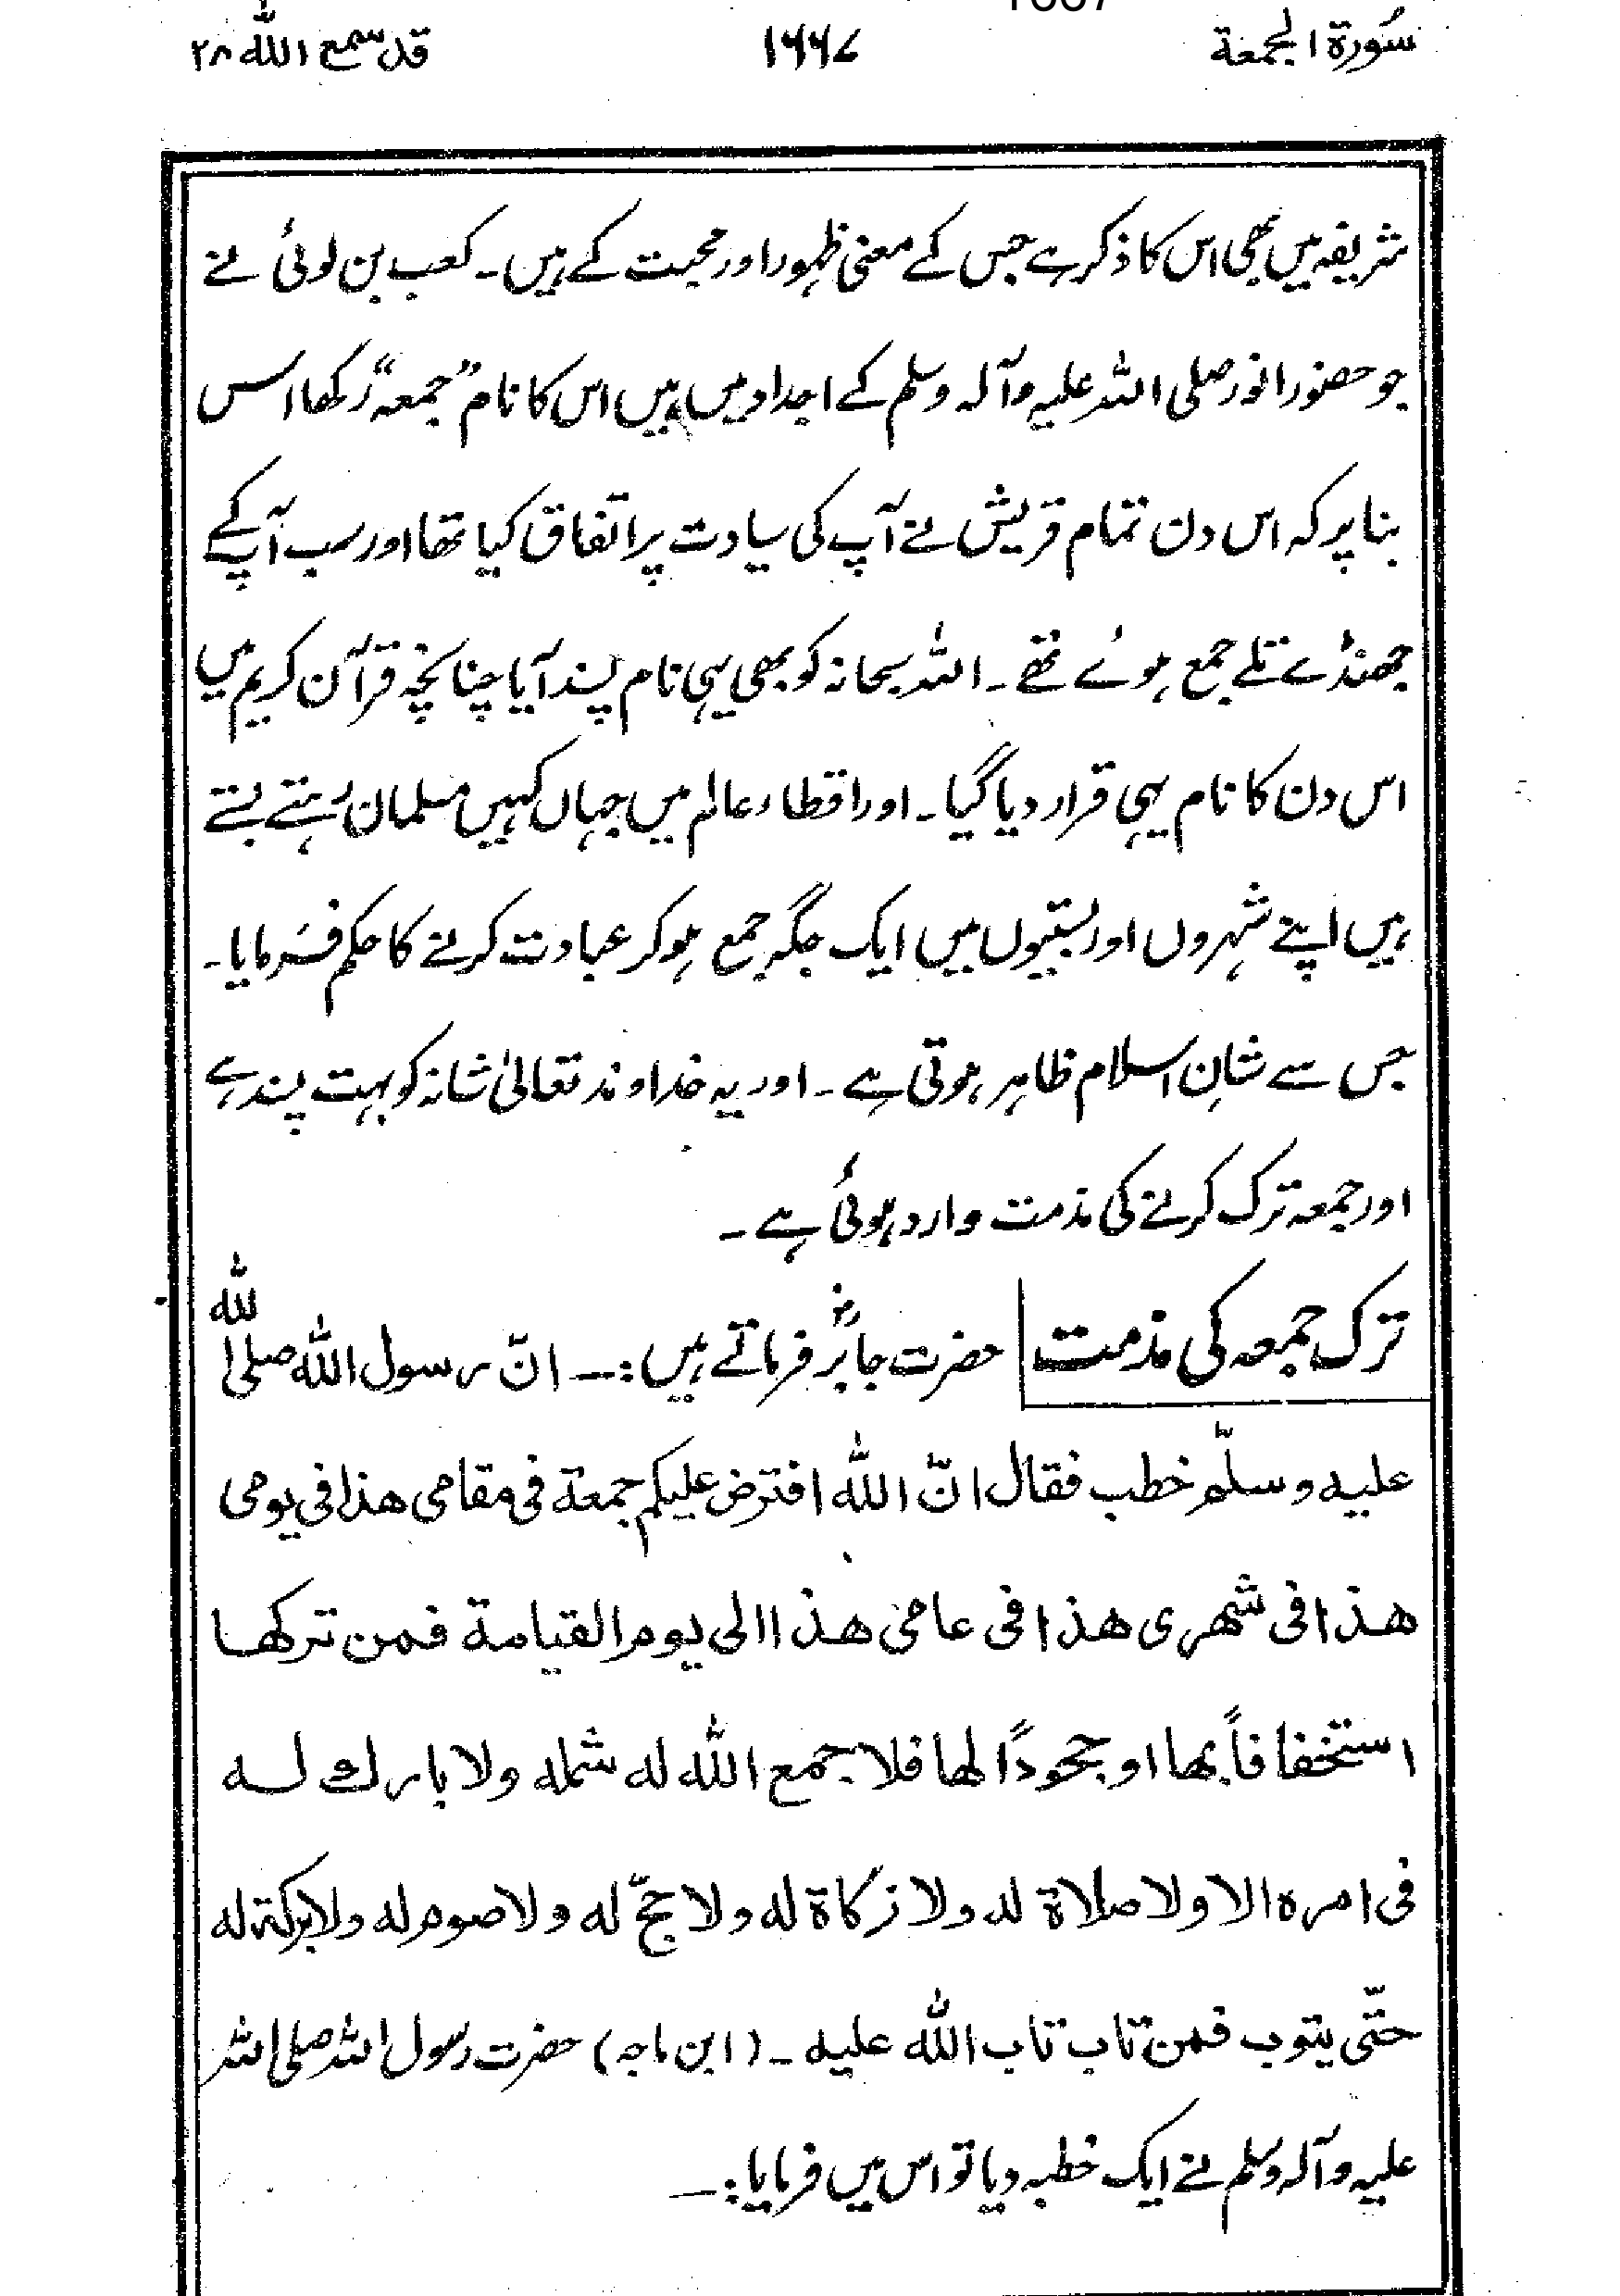 سُورة الجمعة ۱۶۶۷ قد سمع الله ۲۸
شریفہ میں بھی اس کا ذکر ہے جس کے معنی ظہور اور محبت کے ہیں۔ کعب بن لوئی نے
جو حضور انور صلی اللہ علیہ وآلہ وسلم کے اجداد میں ہیں اس کا نام ”جمعہ“ رکھا اس
بنا پر کہ اس دن تمام قریش نے آپ کی سیادت پر اتفاق کیا تھا اور سب آپ کے
جھنڈے تلے جمع ہوئے تھے۔ اللہ سبحانہ کو بھی یہی نام پسند آیا چنانچہ قرآن کریم میں
اس دن کا نام یہی قرار دیا گیا۔ اور اقطار عالم میں جہاں کہیں مسلمان رہتے بستے
ہیں اپنے شہروں اور بستیوں میں ایک جگہ جمع ہو کر عبادت کرنے کا حکم فرمایا۔
جس سے شانِ اسلام ظاہر ہوتی ہے۔ اور یہ خداوند تعالیٰ شانہ کو بہت پسند ہے
اور جمعہ ترک کرنے کی مذمت وارد ہوئی ہے۔
ترک جمعہ کی مذمت حضرت جابرؓ فرماتے ہیں :ـــ انّ رسول الله صلى الله
عليه وسلّم خطب فقال انّ الله افترض عليكم جمعة فى مقامى هذا فى يومى
هذا فى شهرى هذا فى عامى هذا الى يوم القيامة فمن تركها
استخفافاً بها او جحودًا لها فلا جمع الله له شمله ولا بارك له
فى امره الا ولا صلاة له ولا زكاة له ولا حجّ له ولا صوم له ولا بركة له
حتّى يتوب فمن تاب تاب الله عليه ۔ (ابن ماجہ) حضرت رسول اللہ صلی اللہ
علیہ وآلہ وسلم نے ایک خطبہ دیا تو اس میں فرمایا :ـــ